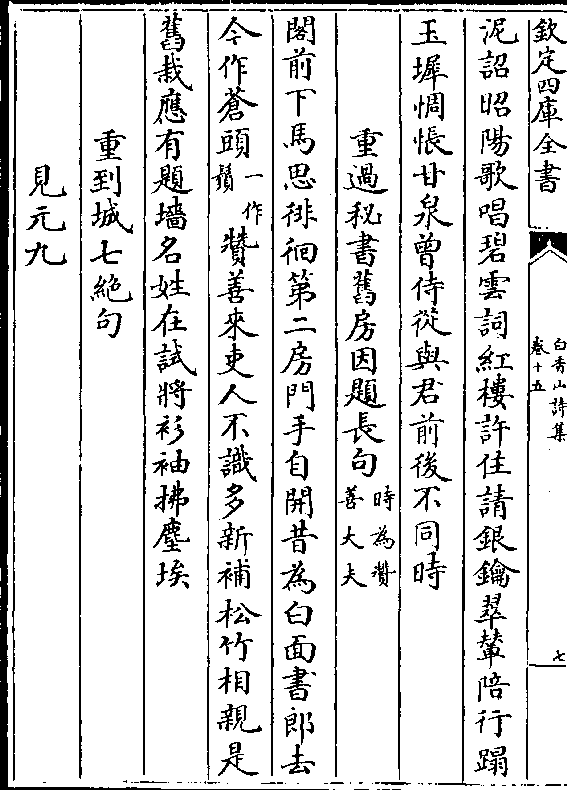 欽定四庫全書
白香山詩集
卷十五
七
泥詔昭陽歌唱碧雲詞紅樓許住請銀鑰翠輦陪行蹋
玉墀惆悵甘泉曾侍從與君前後不同時
重過秘書舊房因題長句時為贊善大夫
閣前下馬思徘徊第二房門手自開昔為白面書郎去
今作蒼頭一作鬚贊善來吏人不識多新補松竹相親是
舊栽應有題墻名姓在試將衫袖拂塵埃
重到城七絶句
見元九